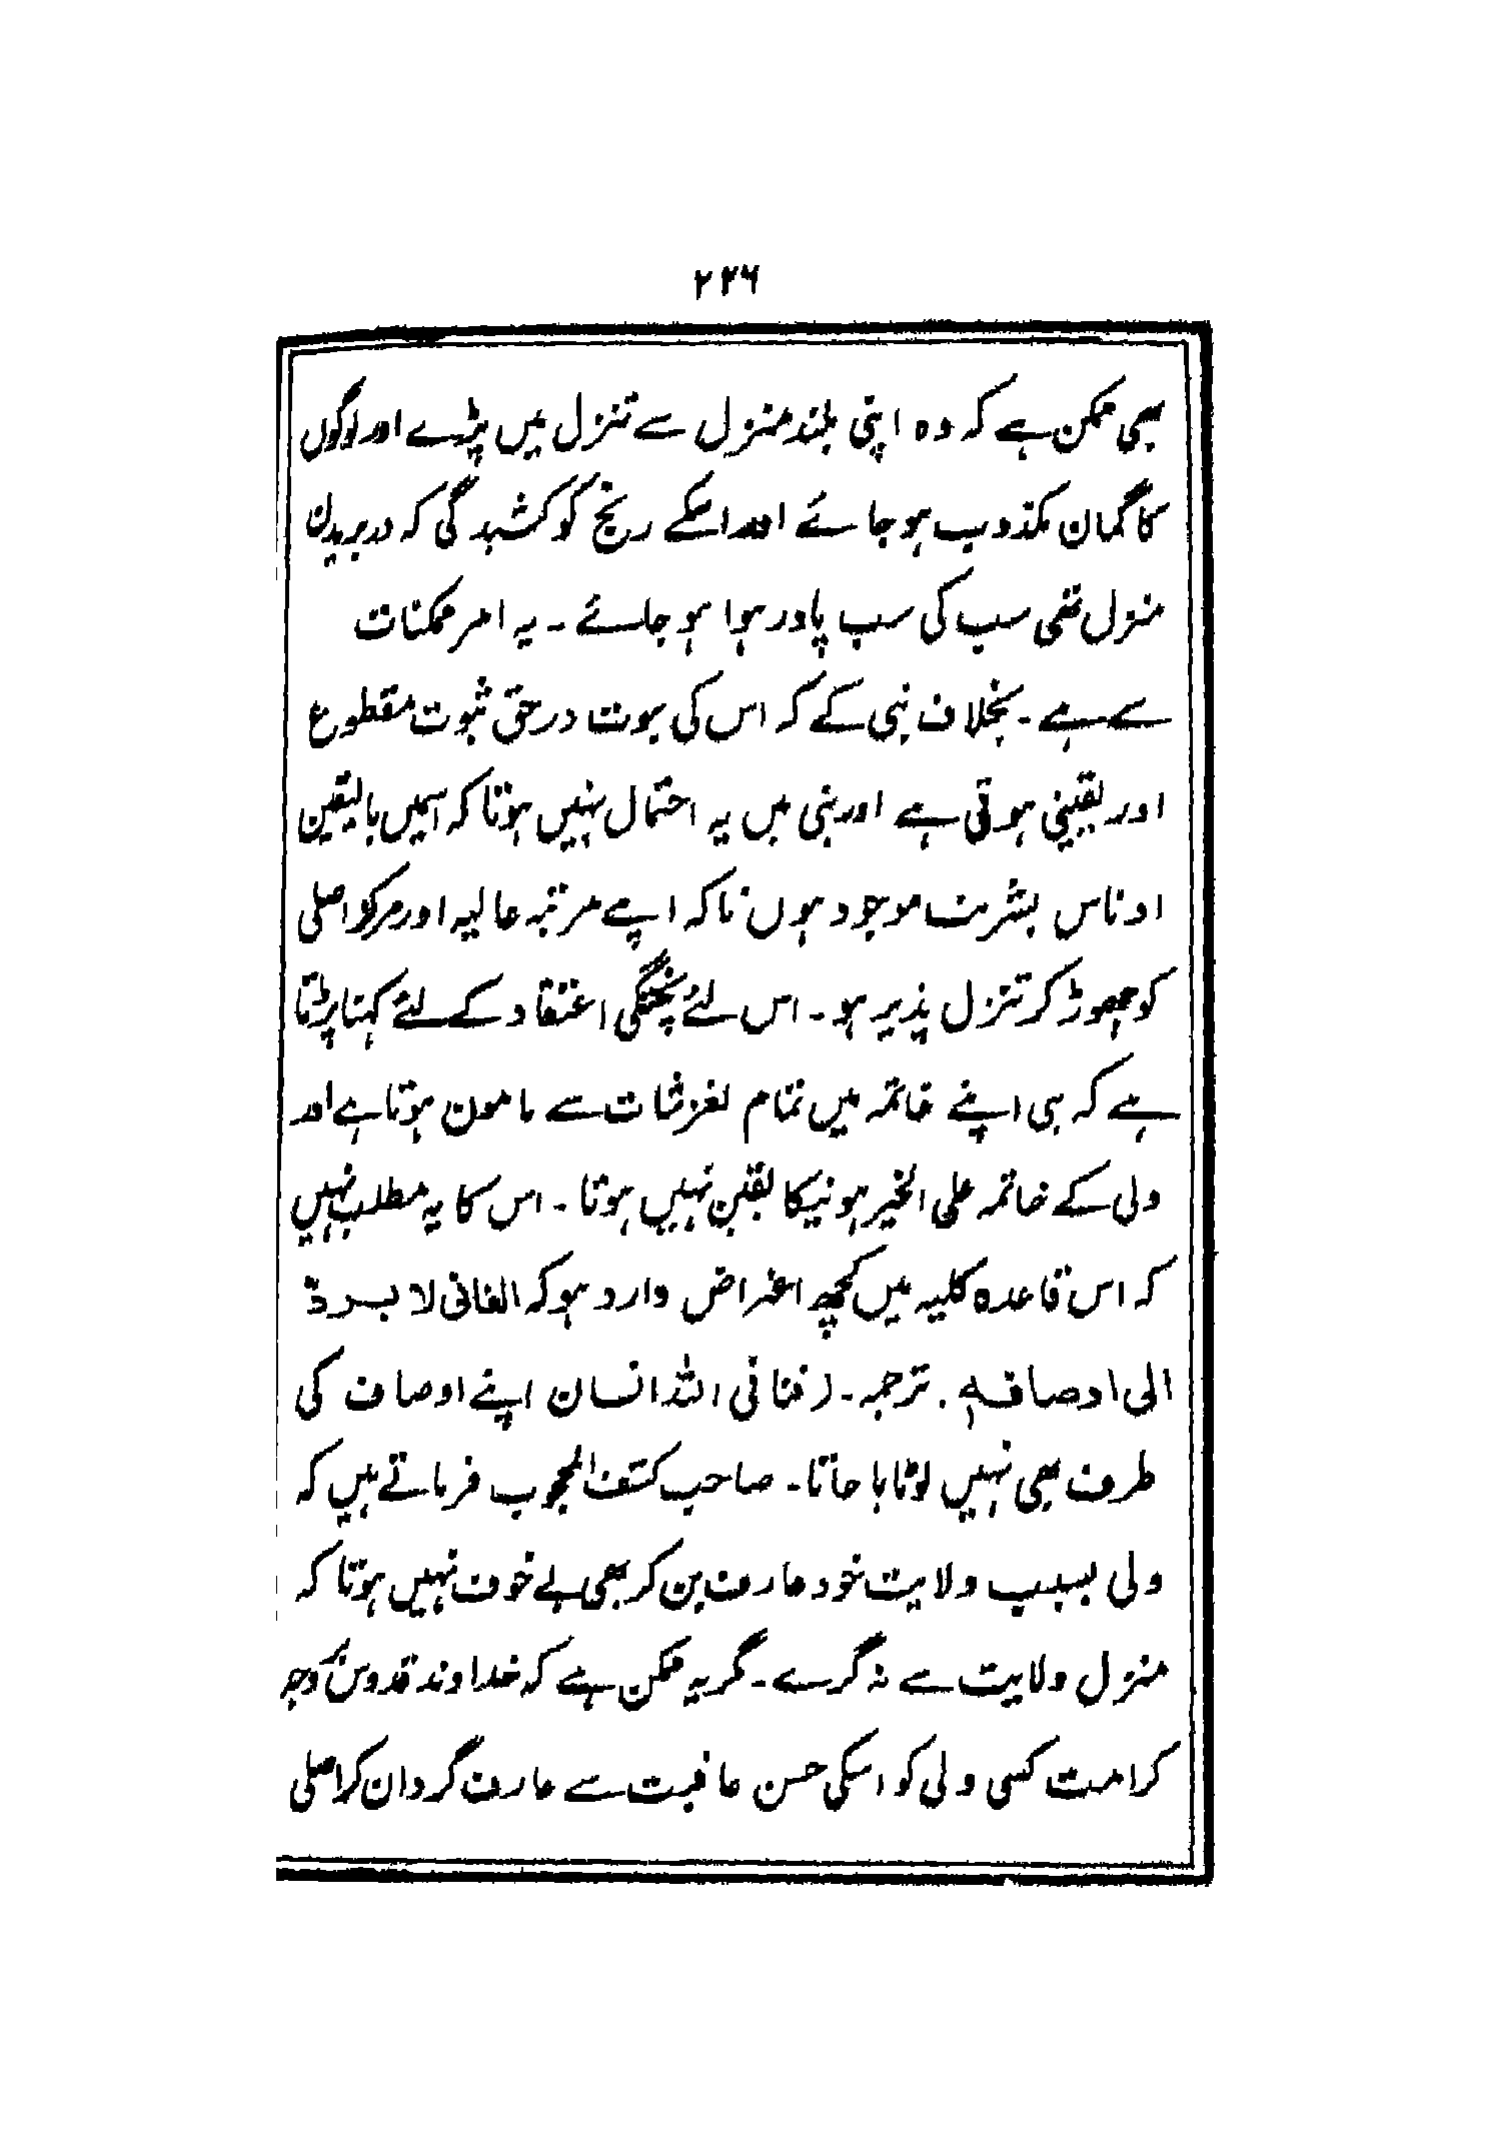 ۲۲۶
بھی ممکن ہے کہ وہ اپنی بلند منزل سے تنزل میں پڑے اور لوگوں
کا گمان مکذوب ہو جائے اور اسکے رنج کو کشیدگی کہ در بریدن
منزل تھی سب کی سب پا در ہوا ہو جائے ۔ یہ امر ممکنات
سے ہے ۔ بخلاف نبی کے کہ اس کی نبوت در حق ثبوت مقطوع
اور یقینی ہوتی ہے اور نبی میں یہ احتمال نہیں ہوتا کہ اسمیں بالیقین
ادناس بشریت موجود ہوں تاکہ اپنے مرتبہ عالیہ اور مرکز اصلی
کو چھوڑ کر تنزل پذیر ہو ۔ اس لئے پختگی اعتقاد کے لئے کہنا پڑتا
ہے کہ نبی اپنے خاتمہ میں تمام لغزشات سے مامون ہوتا ہے اور
ولی کے خاتمہ علی الخیر ہونیکا یقین نہیں ہوتا ۔ اس کا یہ مطلب نہیں
کہ اس قاعدہ کلیہ میں کچھ اعتراض وارد ہو کہ الفانی لا یردّ
الی اوصافہٖ . ترجمہ ۔ (فنا فی اللہ انسان اپنے اوصاف کی
طرف بھی نہیں لوٹایا جاتا ۔ صاحب کشف المحجوب فرماتے ہیں کہ
ولی بسبب ولایت خود عارف بن کر بھی بے خوف نہیں ہوتا کہ
منزل ولایت سے نہ گرے ۔ گر یہ ممکن ہے کہ خداوند قدوس بوجہ
کرامت کسی ولی کو اسکی حسن عافیت سے عارف گردان کر اصلی